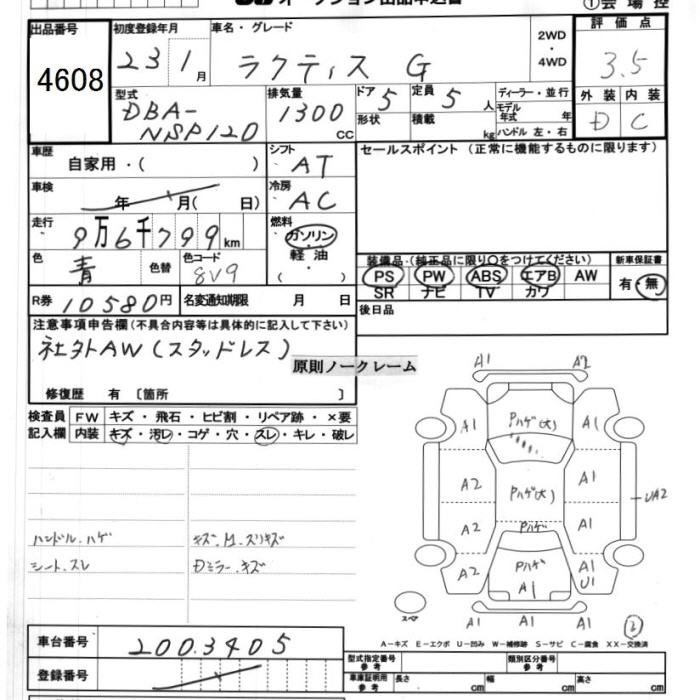 オークション出品申込書
①会場控
出品番号
4608
初度登録年月
23 1月
車名・グレード
ラクティス G
2WD・4WD
評価点
3.5
外装 内装
D C
型式
DBA-NSP120
排気量
1300 CC
ドア 5
形状
定員 5 人
積載 kg
ディーラー・並行
モデル年式 年
ハンドル 左・右
車歴
自家用・( )
シフト
AT
セールスポイント(正常に機能するものに限ります)
車検
年 月( 日)
冷房
AC
走行
9万6千799km
燃料
ガソリン
軽油
色
青
色替
色コード
8V9
装備品・(純正品に限り○をつけてください)
PS PW ABS エアB AW
SR ナビ TV カワ
新車保証書
有・無
R券 10580円
名変通知期限 月 日
後日品
注意事項申告欄(不具合内容等は具体的に記入して下さい)
社外AW(スタッドレス)
原則ノークレーム
修復歴 有〔箇所 〕
検査員記入欄
FW キズ・飛石・ヒビ割・リペア跡・×要
内装 キズ・汚レ・コゲ・穴・スレ・キレ・破レ
ハンドル.ハゲ キズ.M.スリキズ
シート.スレ Dミラー.キズ
A1 A2
A1 Pハゲ(大) A1
A2 Pハゲ(大) A1
UA2
A2 Pハゲ A1
A2 Pハゲ A1 A1 U1
スペア
A1 A1 A1
3
A-キズ E-エクボ U-凹み W-補修跡 S-サビ C-腐食 XX-交換済
車台番号
2003405
登録番号
型式指定番号 参考
類別区分番号 参考
車庫証明用 参考
長さ cm 幅 cm 高さ cm